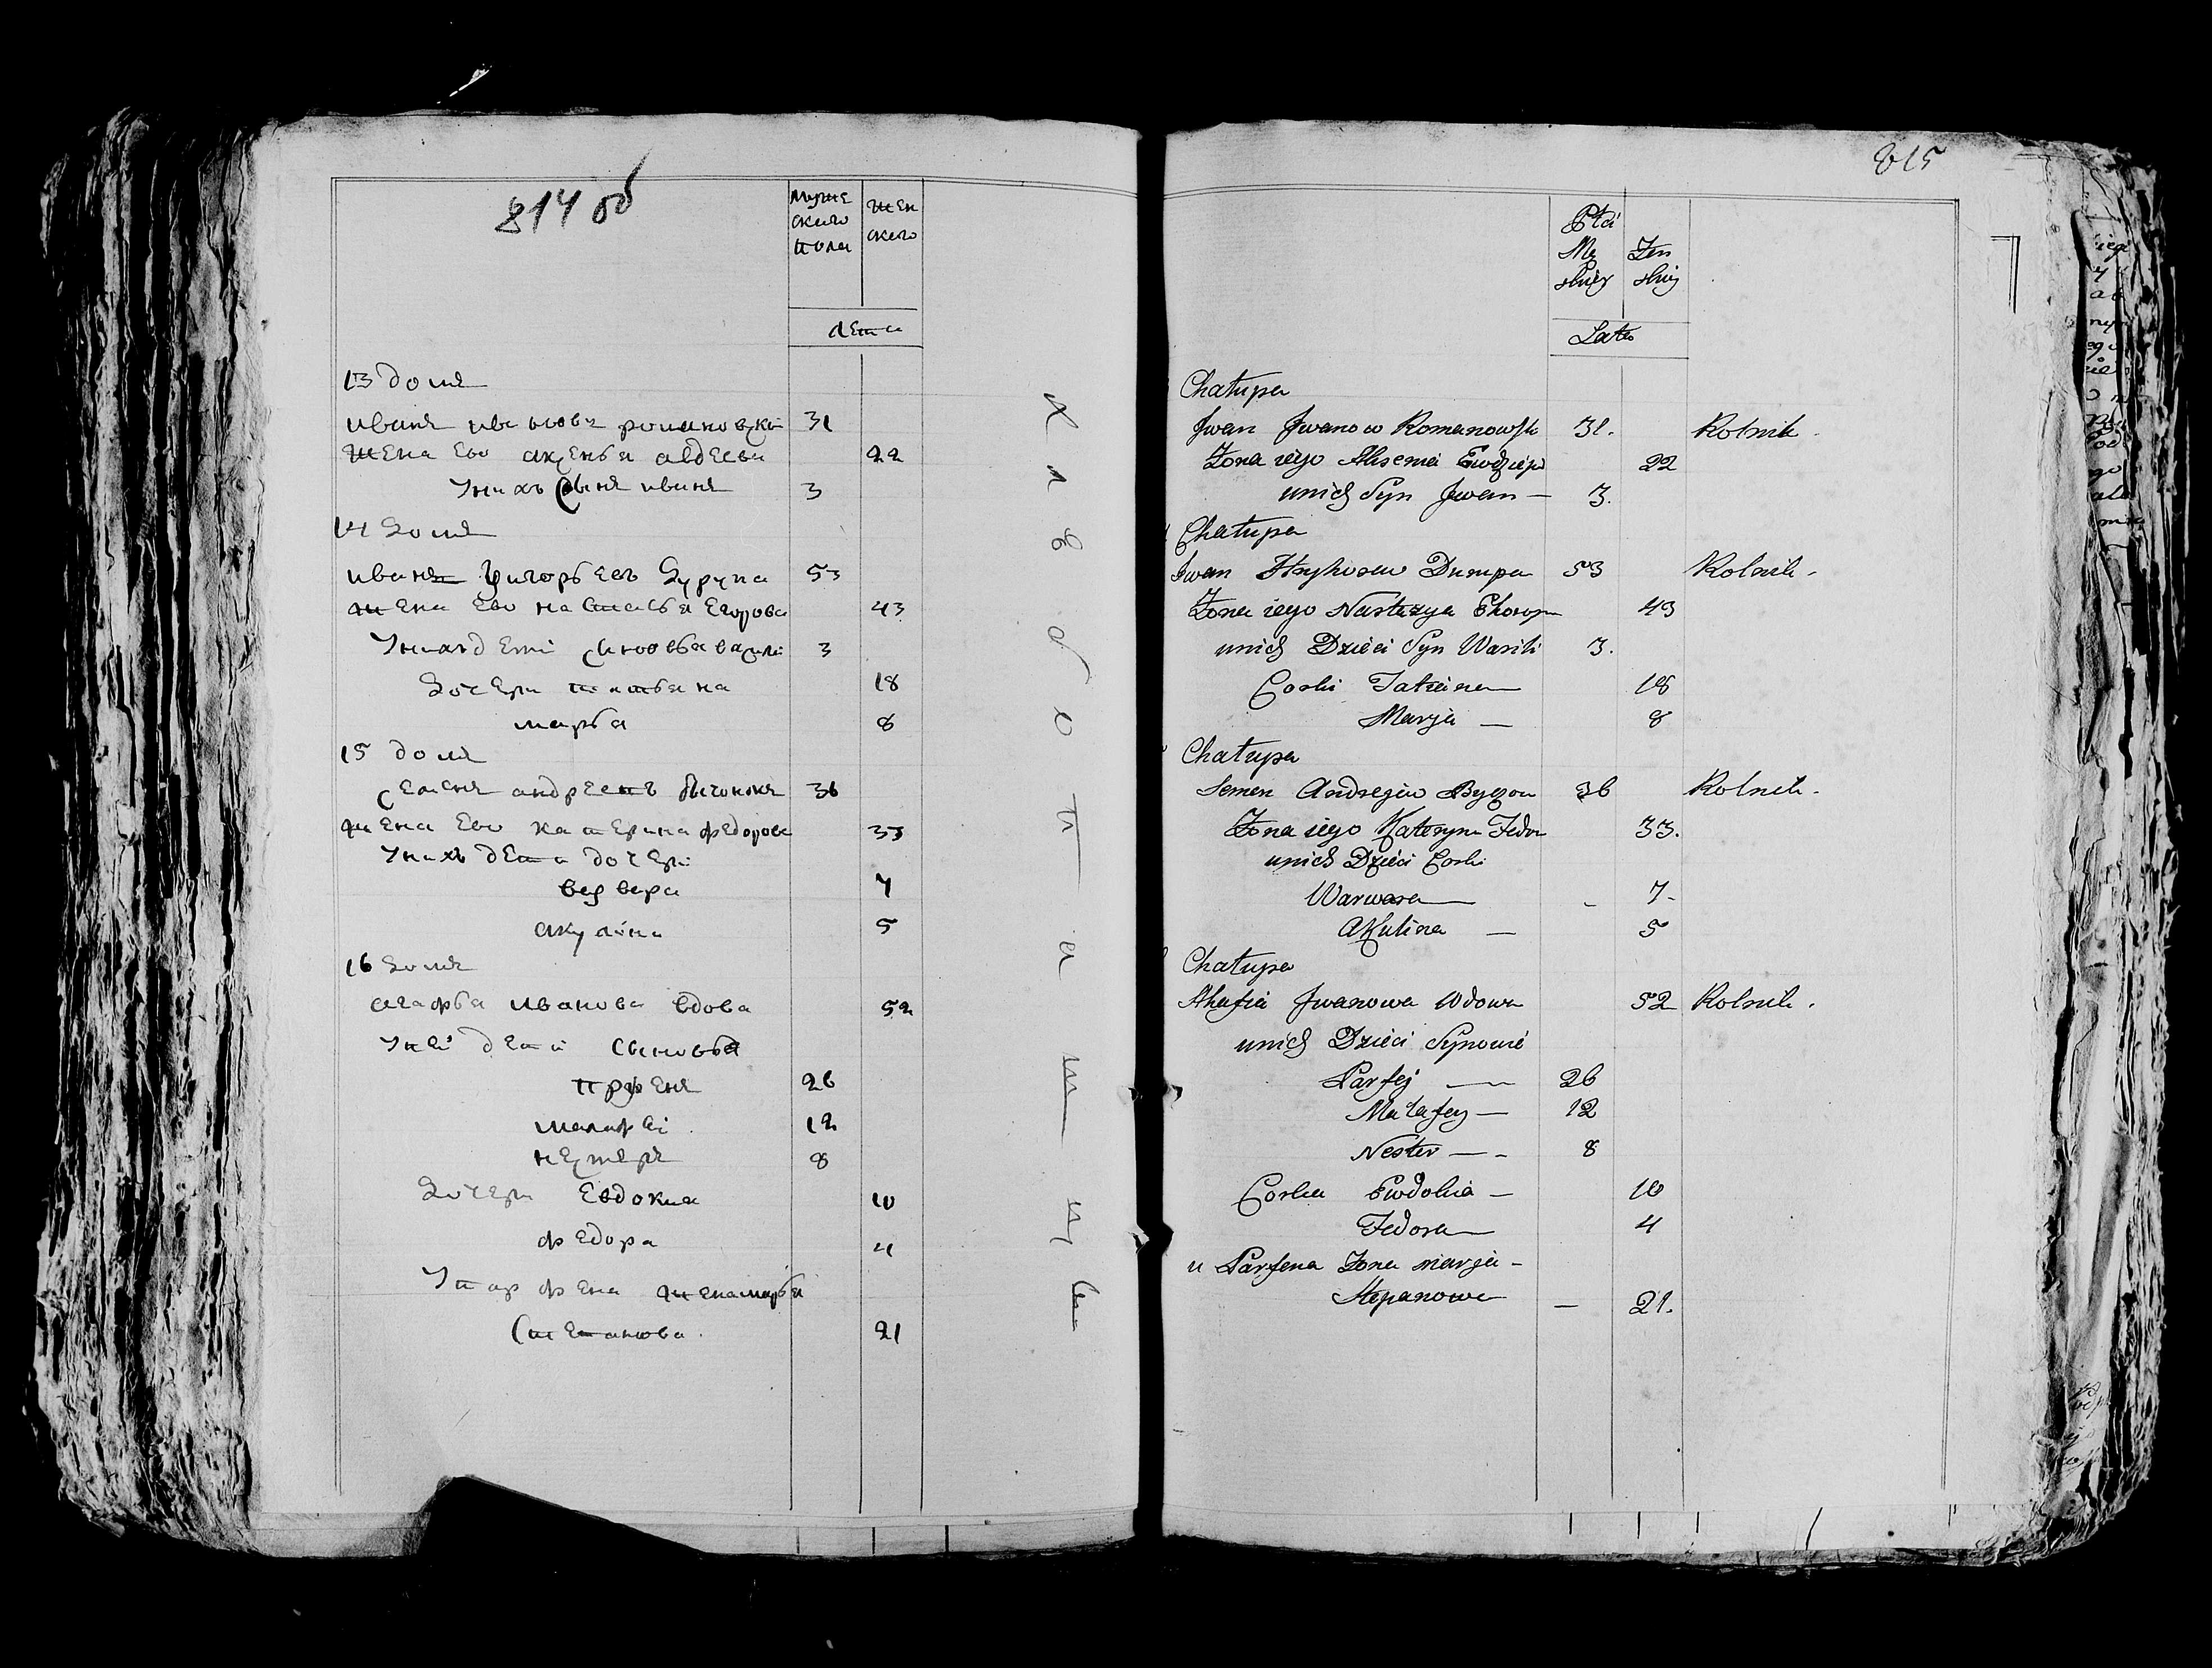 814 об
муже
ского
пола
жен
ского
лета
13 домъ
иванъ ивановъ романовски 31
жена ево аксенья авдеева 22
у них сынъ иванъ 3
14 домъ
иванъ григорьевъ 53
жена ево настасья егорова 43
у них дети сыновья васили 3
дочери татьяна 18
марья 8
15 домъ
семенъ андреевъ 36
жена ево катерина федорова 33
у нихъ дети дочери
варвара 7
акулина 5
16 домъ
агафья иванова вдова 52
у ней дети сыновья
прфенъ 26
малафеі 12
нестеръ 8
дочери Евдокиа 10
федора 4
у парфена жена марья
степанова 21
хлебопашецы
815
Płci
Mę
skiey
Żen
skiey
Lata
Chałupa
Jwan Jwanow Romanowsk 31. Rolnik.
Żona iego Aksenia Ewdzieja 22
unich Syn Jwan — 3.
Chałupa
Jwan Hryhorew Durupa 53 Rolnik.
Żona iego Nastazya Ehorow 43
unich Dzieci Syn Wasili 3.
Corki Tatiana — 18
Marja — 8
Chałupa
Semen Andrejew Byczon 36 Rolnik.
Żona iego Kateryna Fedor 33.
unich Dzieci Corki
Warwara — 7-
Akulina — 5
Chałupa
Ahafia Jwanowa Wdowa 52 Rolnik.
unich Dzieci Synowie
Parfej — 26
Małafey — 12
Nester — 8
Corka Ewdokia — 10
Fedora — 4
u Parfena Żona marja -
Stepanowa — 21.